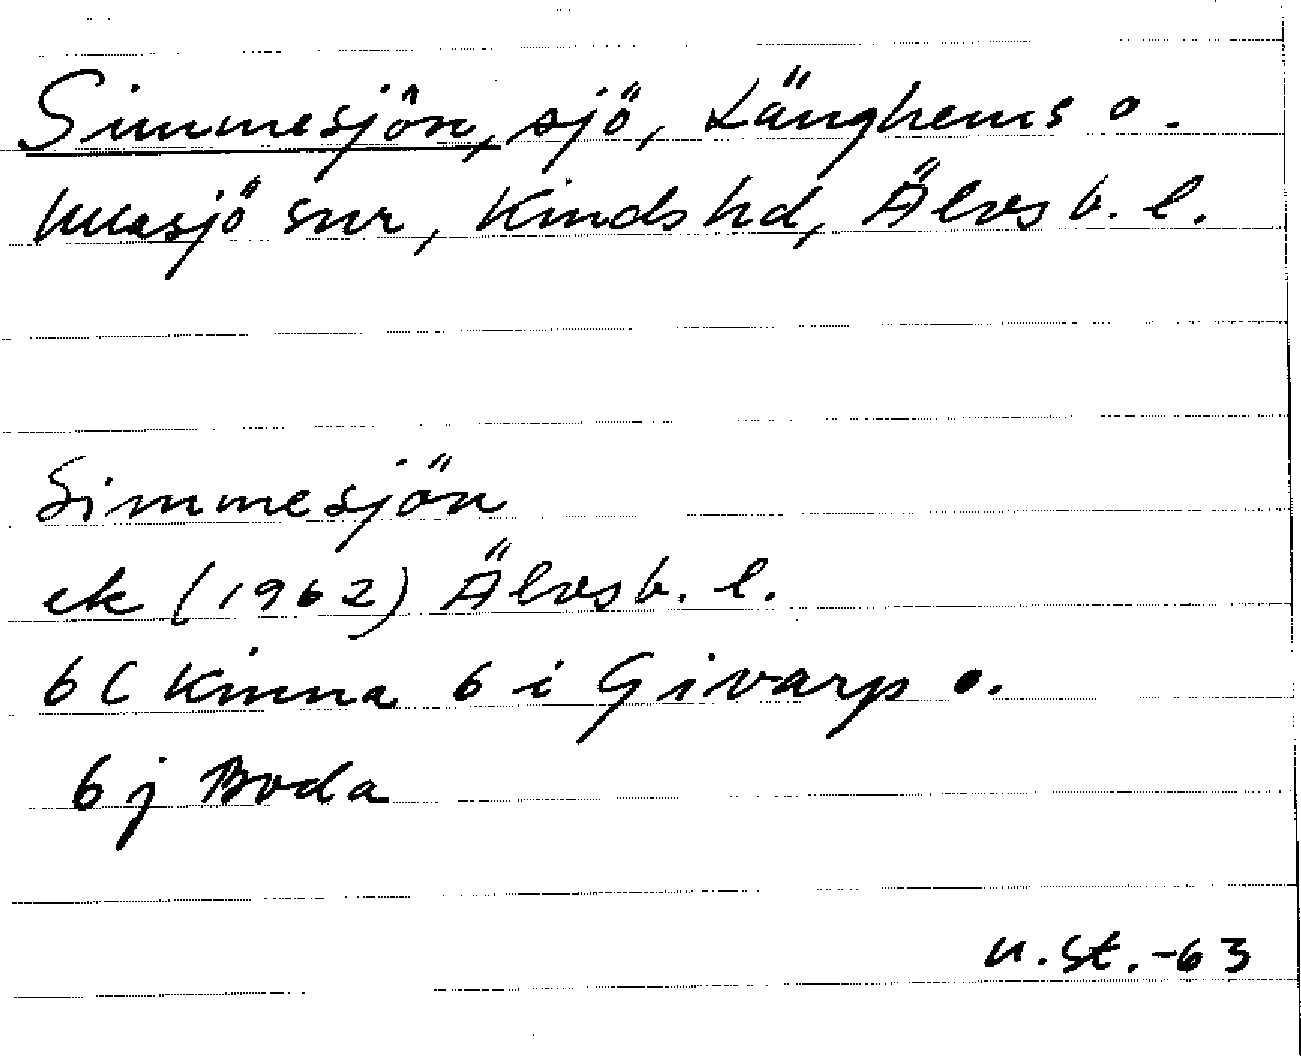 Simmesjön, sjö, Länghems o.
Månasjö snr, Kinds hd, Älvsb. l.
Simmesjön
ek (1962) Älvsb. l.
6 C Kinna 6 i Givarp o.
6 j Boda
n. St. -63